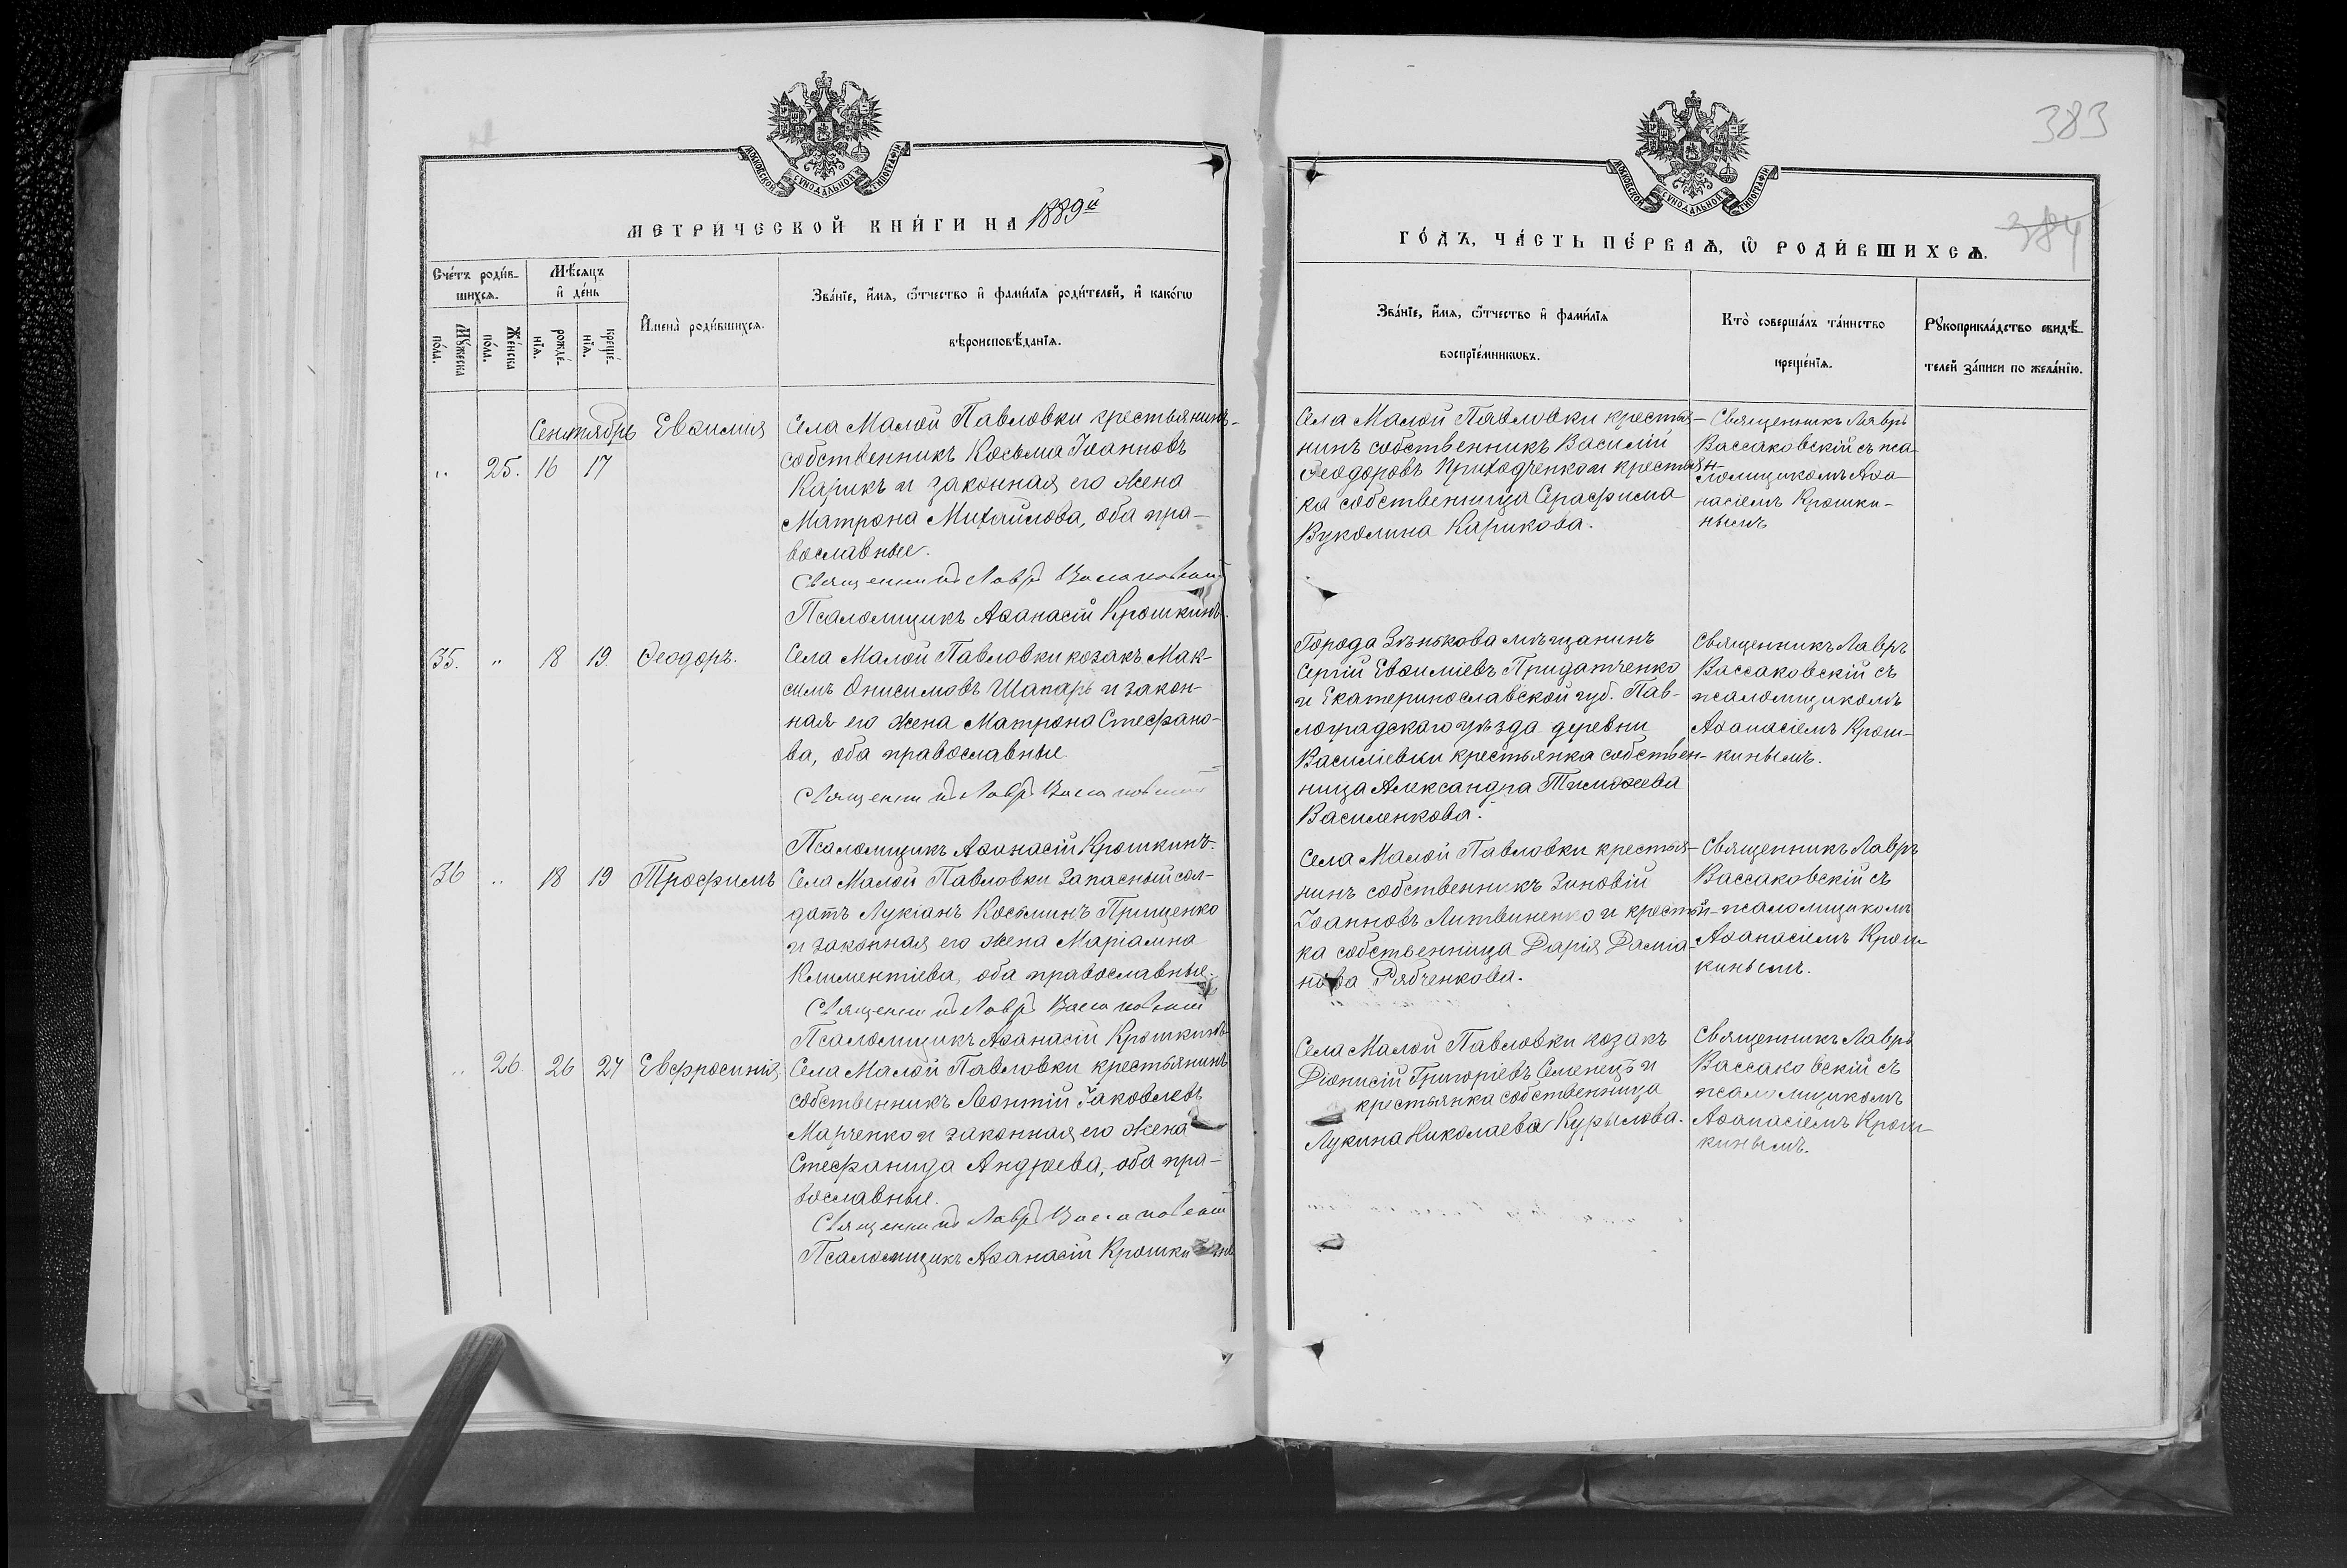 МОСКОВСКОЙ СѴНОДАЛЬНОЙ ТИПОГРАФІИ
МЕТРИ́ЧЕСКОЙ КНИ́ГИ НА 1889й
Сче́тъ роди́в-
шихсѧ.
Мꙋ́жеска
по́ла.
Же́нска
по́ла.
Мѣ́сѧцъ
и҆ де́нь
рожде́-
нїѧ.
креще́-
нїѧ.
И҆мена̀ роди́вшихсѧ.
Зва́нїе, и҆́мѧ, ѻ҆́тчество и҆ фами́лїѧ роди́телей, и҆ како́гѡ
вѣроисповѣ́данїѧ.
Сентябрь
„ 25. 16 17
Евѳимія
Села Малой Павловки крестьянинъ-
собственникъ Косьма Іоанновъ
Карикъ и законная его жена
Матрона Михайлова, оба пра-
вославные.
Священникъ Лавръ Вассаковскій
Псаломщикъ Аѳанасій Крошкинъ.
35. „ 18 19. Ѳеодоръ.
Села Малой Павловки козакъ Мак-
симъ Онисимовъ Шапарь и закон-
ная его жена Матрона Стефано-
ва, оба православные
Священникъ Лавръ Вассаковскій
Псаломщикъ Аѳанасій Крошкинъ.
36 „ 18 19 Трофимъ
Села Малой Павловки запасный сол-
датъ Лукіанъ Косминъ Прищенко
и законная его жена Маріамна
Климентіева, оба православные.
Священникъ Лавръ Вассаковскій
Псаломщикъ Аѳанасій Крошкинъ
„ 26 26 27 Евфросинія
Села Малой Павловки крестьянинъ
собственникъ Леонтій Іаковлевъ
Марченко и законная его жена
Стефанида Андреева, оба пра-
вославные.
Священникъ Лавръ Вассаковскій
Псаломщикъ Аѳанасій Крошкинъ
383
384
МОСКОВСКОЙ СѴНОДАЛЬНОЙ ТИПОГРАФІИ
ГО́ДЪ, ЧА́СТЬ ПЕ́РВАѦ, Ѡ҆ РОДИ́ВШИХСѦ.
Зва́нїе, и҆́мѧ, ѻ҆́тчество и҆ фами́лїѧ
воспрїе́мникѡвъ.
Кто̀ соверша́лъ та́инство
креще́нїѧ.
Рꙋкоприкла́дство свидѣ́-
телей за́писи по жела́нїю.
Села Малой Павловки крестья-
нинъ собственникъ Василій
Ѳеодоровъ Приходченко и крестьян-
ка собственница Серафима
Вуколина Карикова.
Священникъ Лавръ
Вассаковскій съ пса-
ломщикомъ Аѳа-
насіемъ Крошки-
нымъ
Города Зѣнькова мѣщанинъ
Сергій Евѳиміевъ Придатченко
и Екатеринославской губ. Пав-
лоградскаго уѣзда деревни
Василіевки крестьянка собствен-
ница Александра Тимоѳеева
Василенкова.
Священникъ Лавръ
Вассаковскій съ
псаломщикомъ
Аѳанасіемъ Крош-
кинымъ.
Села Малой Павловки крестья-
нинъ собственникъ Зиновій
Іоанновъ Литвиненко и крестьян-
ка собственница Дарія Даміа-
нова Рябченкова.
Священникъ Лавръ
Вассаковскій съ
псаломщикомъ
Аѳанасіемъ Крош-
кинымъ.
Села Малой Павловки козакъ
Діонисій Григоріевъ Семенецъ и
крестьянка собственница
Лукина Николаева Курылова.
Священникъ Лавръ
Вассаковскій съ
псаломщикомъ
Аѳанасіемъ Крош-
кинымъ.